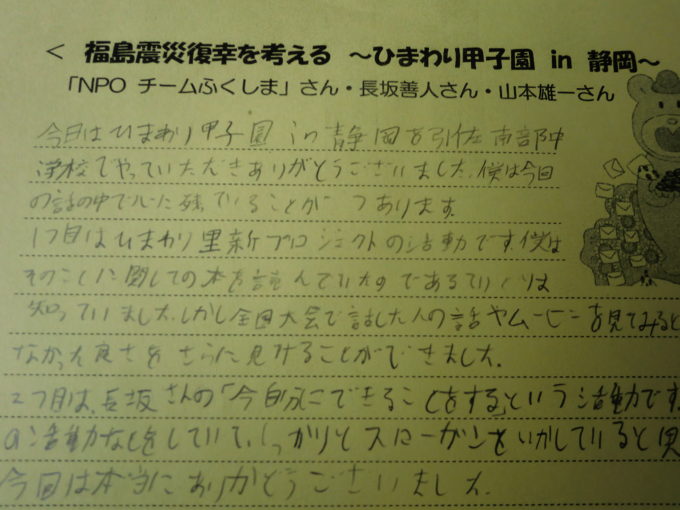 < 福島震災復幸を考える ～ひまわり甲子園 in 静岡～
「NPO チームふくしま」さん・長坂善人さん・山本雄一さん
今日はひまわり甲子園 in 静岡を引佐南部中
学校でやっていただきありがとうございました。僕は今回
の話の中で心に残っていることが 2つあります。
1つ目はひまわり里新プロジェクトの活動です。僕は
そのことに関しての本を読んでいたのである
知っていました。しかし全国大会で話した人の話やムービーを見てみると
なかった良さをさらに見つけることができました。
2つ目は、長坂さんの「今自分にできることをする」という活動です
の活動などをしていて、しっかりとスローガンをいかしていると
今回は本当にありがとうございました。